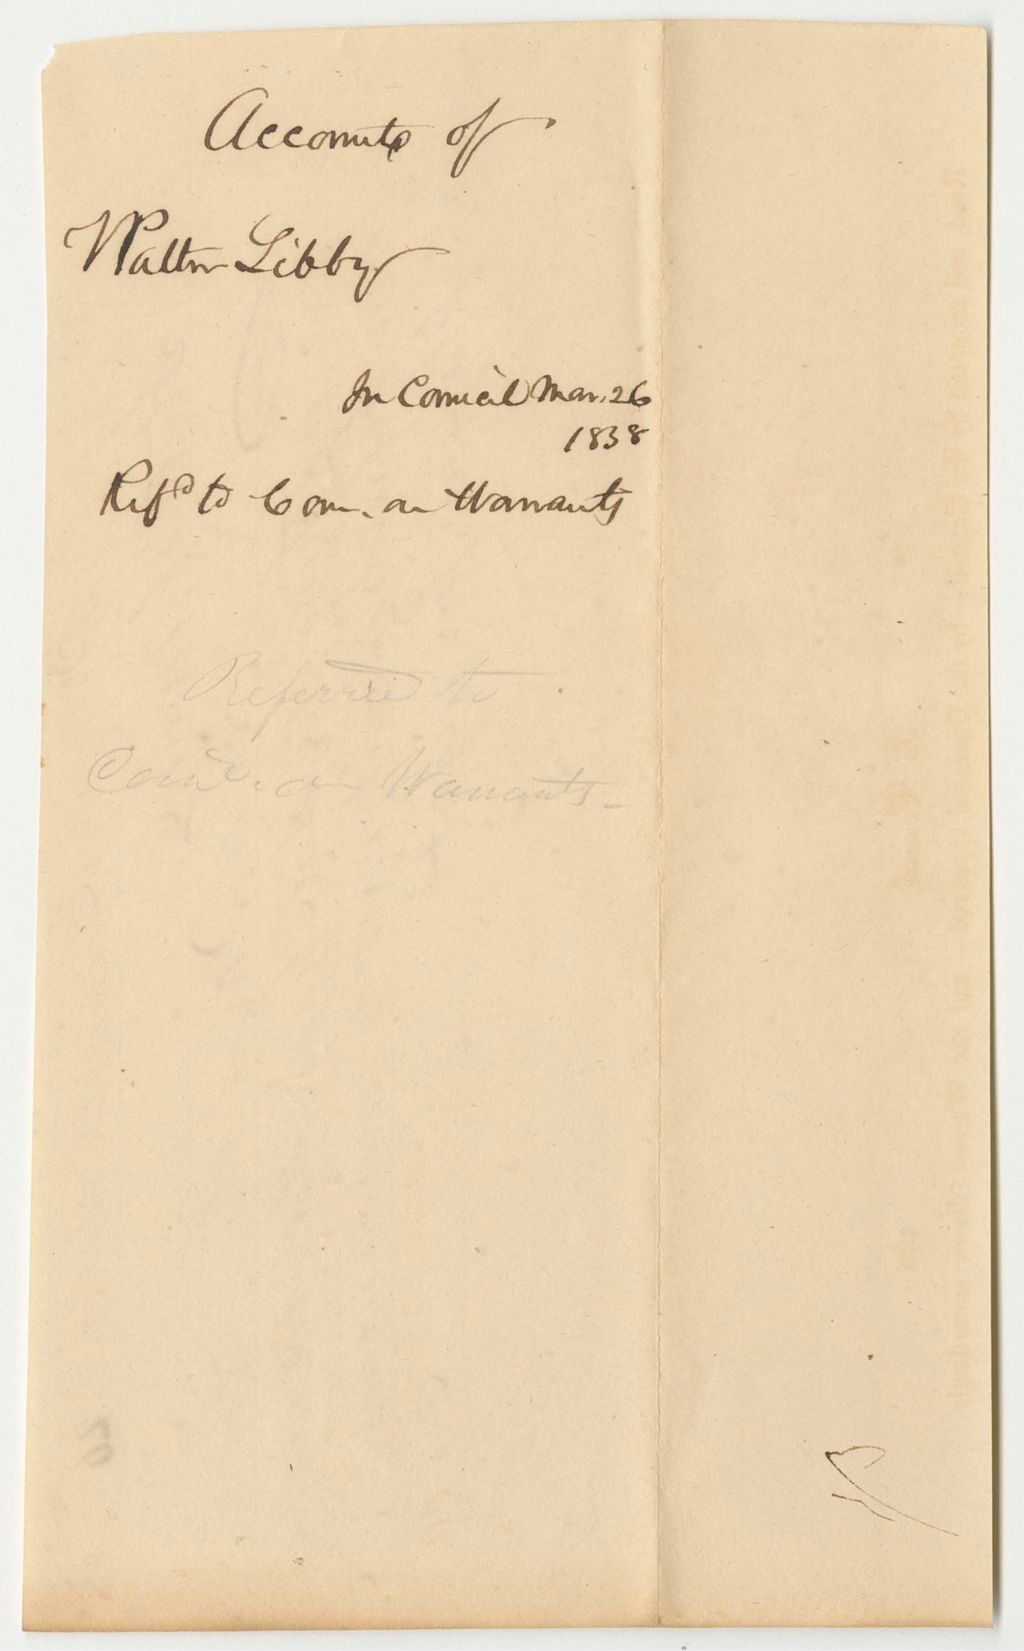 Accounts of
Walter Libby
In Council Mar. 26
1838
Refd to Com. on Warrants
Referred to
Com. on Warrants